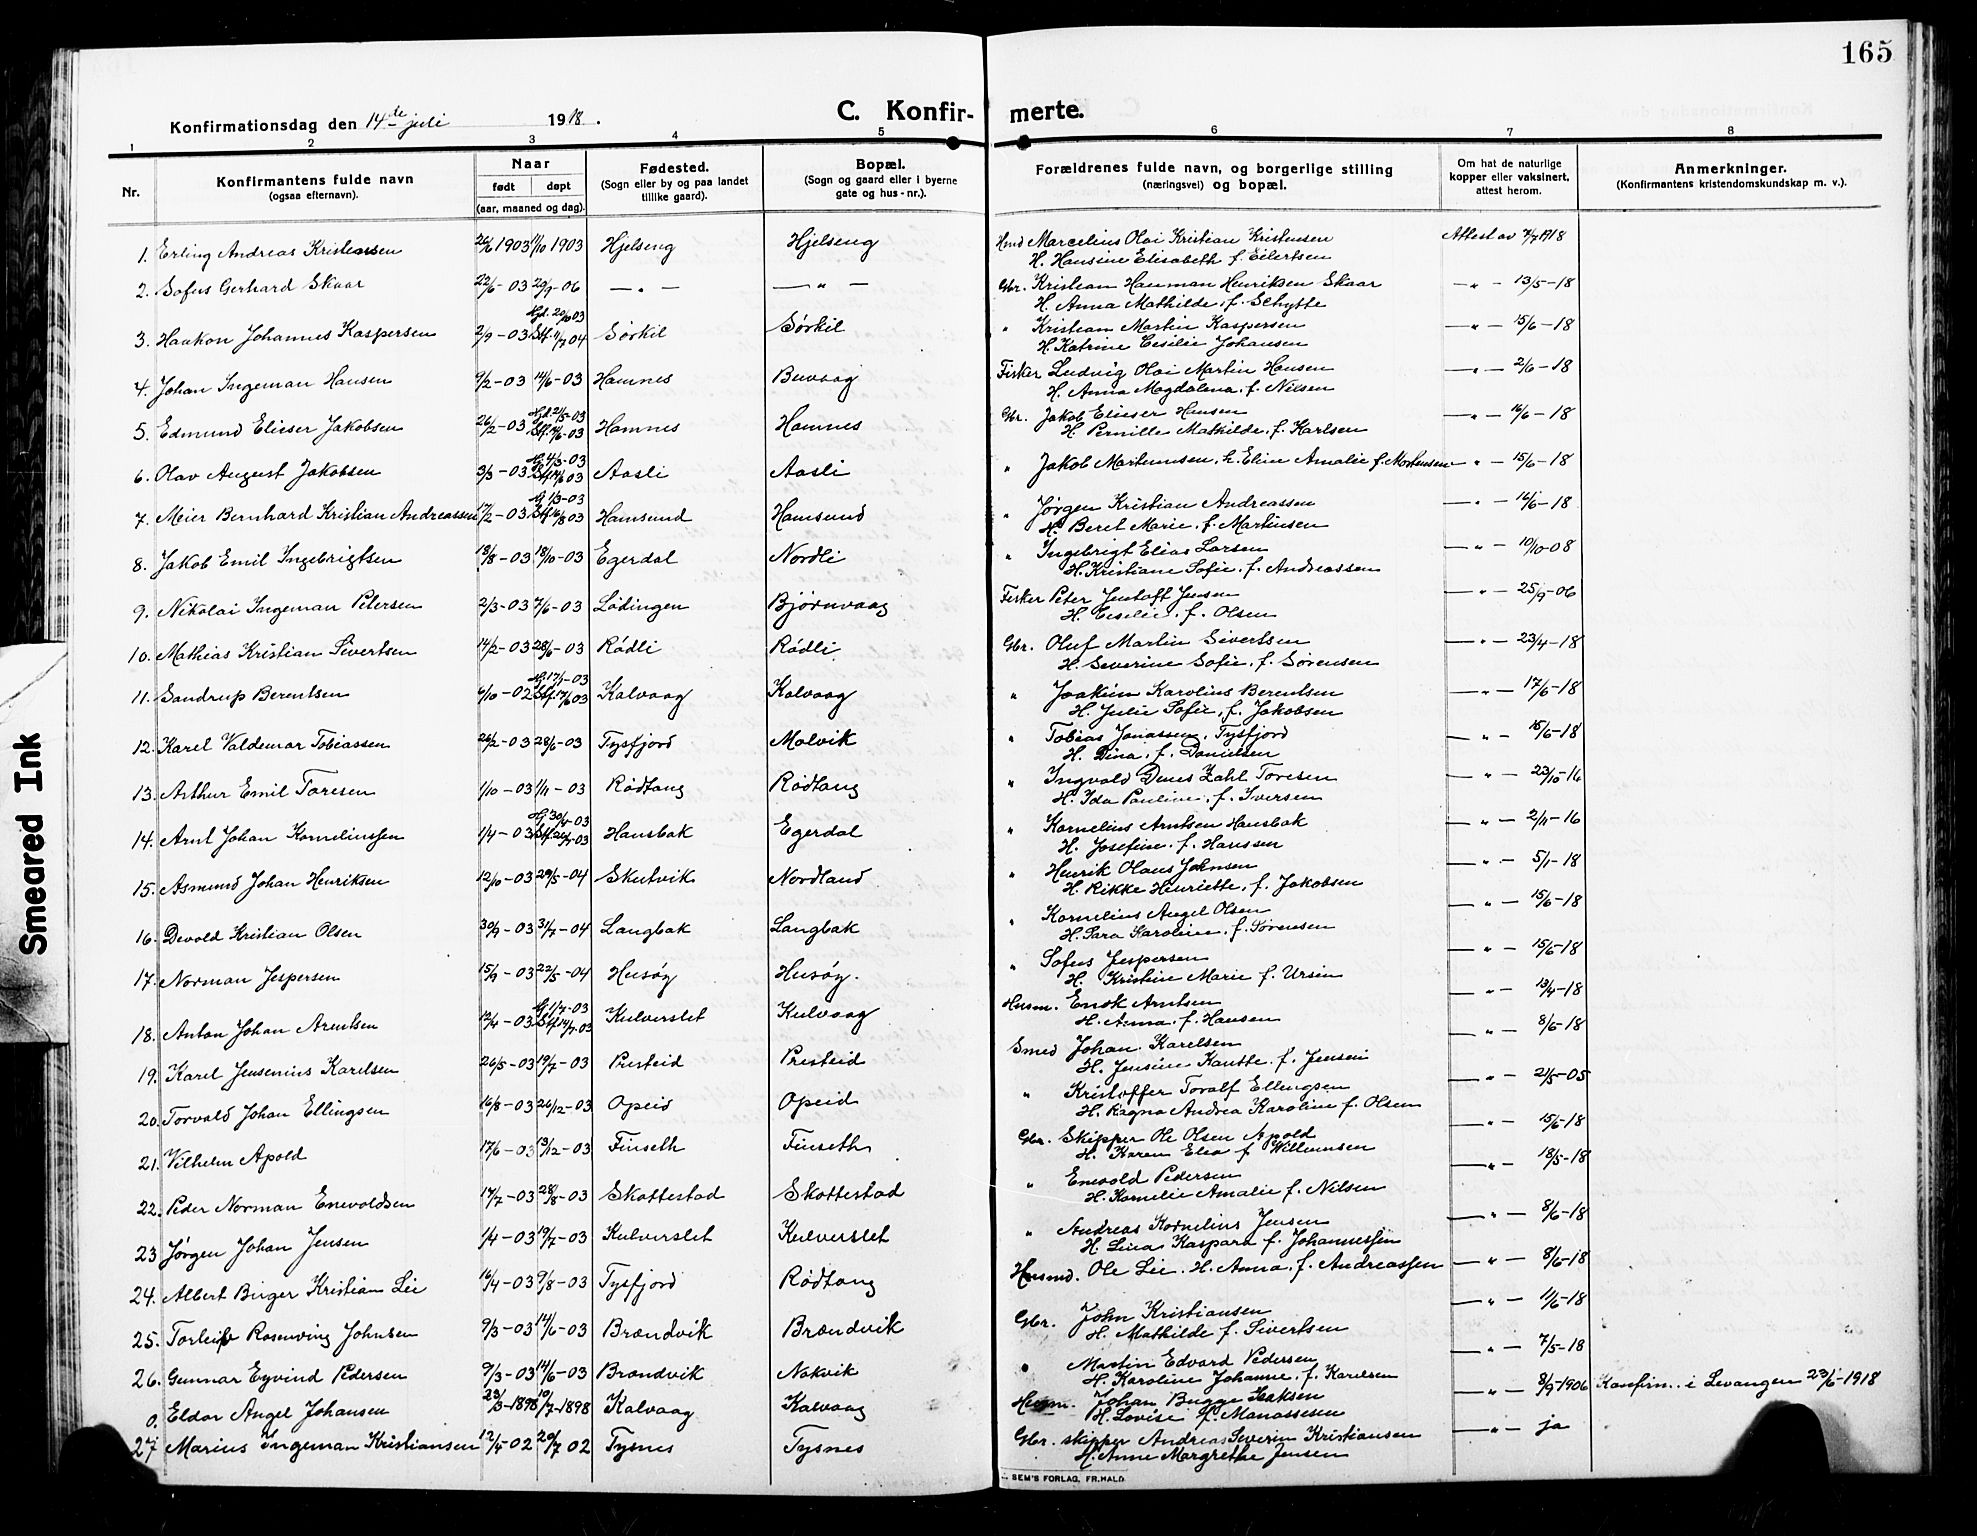 165
Konfirmationsdag den 14de juli 1918.
C. Konfir- merte.
1 2 3 4 5 6 7 8
Nr.
Konfirmantens fulde navn
(ogsaa efternavn).
Naar
født døpt
(aar, maaned og dag).
Fødested.
(Sogn eller by og paa landet
tillike gaard).
Bopæl.
(Sogn og gaard eller i byerne
gate og hus-nr.).
Forældrenes fulde navn, og borgerlige stilling
(næringsvei) og bopæl.
Om hat de naturlige
kopper eller vaksinert,
attest herom.
Anmerkninger.
(Konfirmantens kristendomskundskap m. v.).
1. Erling Andreas Kristensen 26/6 1903 11/10 1903 Hjelseng Hjelseng Hmd Marcelius Olai Kristian Kristensen Attest av 7/7 1918
H. Hansine Elisabeth f. Eilertsen
2. Sofus Gerhard Skaar 22/6-03 29/9-06 — " — — " — Gbr. Kristian Hauman Henriksen Skaar — " — 13/5-18
H. Anna Mathilde, f. Schytte
3. Haakon Johannes Kaspersen 2/9-03 Hjd. 20/10 03 Stf. 11/7 04 Sørkil Sørkil " Kristian Martin Kaspersen — " — 15/6-18
H. Katrine Cesilie Johansen
4. Johan Ingeman Hansen 9/2-03 14/6-03 Hamnes Buvaag Fisker Ludvig Olai Martin Hansen — " — 2/6-18
H. Anna Magdalena, f. Nilsen
5. Edmund Elieser Jakobsen 26/2-03 Hjd. 21/5-03 Stf. 14/6-03 Hamnes Hamnes Gbr. Jakob Elieser Hansen — " — 16/6-18
H. Pernille Mathilde, f. Karlsen
6. Olav August Jakobsen 3/3-03 Hj. 4/3-03 Stf. 14/6 03 Aasli Aasli " Jakob Martinusen, h. Elin Amalie f. Mortensen — " — 15/6-18
7. Meier Bernhard Kristian Andreassen 17/2-03 Hj 1/3-03 Stf. 16/8 03 Hamsund Hamsund " Jørgen Kristian Andreassen — " — 16/6-18
H. Beret Marie, f. Martinsen
8. Jakob Emil Ingebrigtsen 13/8-03 18/10-03 Egerdal Nordli " Ingebrigt Elias Larsen — " — 10/10-08
H. Kristiane Sofie, f. Andreassen
9. Nikolai Ingeman Petersen 2/3-03 7/6-03 Lødingen Bjørnvaag Fisker Peter Justoft Jensen — " — 25/9-06
H. Cesilie, f. Olsen
10. Mathias Kristian Sivertsen 14/2-03 28/6-03 Rødli Rødli Gbr. Oluf Martin Sivertsen — " — 23/4-18
H. Severine Sofie, f. Sørensen
11. Sandrup Berentsen 4/10-02 Hj. 17/1-03 Stf. 17/6 03 Kalvaag Kalvaag " Joakim Karolius Berentsen — " — 17/6-18
H. Julie Sofie, f. Jakobsen
12. Karel Valdemar Tobiassen 26/2-03 28/6-03 Tysfjord Malvik " Tobias Jonassen, Tysfjord — " — 15/6-18
H. Dina, f. Danielsen
13. Arthur Emil Toresen 1/10-03 1/11-03 Rødtang Rødtang " Ingvald Denes Zahl Toresen — " — 23/10-16
H. Ida Pauline, f. Iversen
14. Arnt Johan Korneliussen 1/4-03 Hj. 30/4-03 Stf. 20/7-03 Hansbak Egerdal " Kornelius Arntsen Hansbak — " — 2/11-16
H. Josefine, f. Hanssen
15. Asmund Johan Henriksen 12/10-03 29/5-04 Skutvik Nordland " Henrik Olaus Johnsen — " — 5/1-18
H. Rikke Henriette, f. Jakobsen
16. Devold Kristian Olsen 30/9-03 31/7-04 Langbak Langbak " Kornelius Angel Olsen — " — 15/6-18
H. Sara Karoline, f. Sørensen
17. Norman Jespersen 15/9-03 22/5-04 Husøy Husøy. " Sofus Jespersen — " — 15/6-18
H. Kristine Marie f. Ursin
18. Anton Johan Arentsen 12/4-03 Hj. 1/7-03 Stf. 14/7-03 Kulverslet Kulvaag Husm. Enok Arntsen — " — 13/4-18
H. Anna, f. Hansen
19. Karel Jensenius Karelsen 26/5-03 19/7-03 Presteid Presteid Smed Johan Karelsen — " — 8/6-18
H. Jensine Kanutte, f. Jensen
20. Torvald Johan Ellingsen 16/8-03 26/12-03 Opeid Opeid " Kristoffer Toralf Ellingsen — " — 21/5-05
H. Ragna Andrea Karoline f. Olsen
21. Vilhelm Apold 17/6-03 13/12-03 Finseth Finseth Gbr. Skipper Ole Olsen Apold — " — 15/6-18
H. Karen Elea f Williumsen
22. Peder Norman Enevoldsen 17/7-03 28/8-03 Skottestad Skottestad " Enevold Pedersen — " — 18/5-18
H. Kornelie Amalie f. Nilsen
23 Jørgen Johan Jensen 1/4-03 19/7-03 Kulverslet Kulverslet " Andreas Kornelius Jensen — " — 8/6-18
H. Lina Kaspara f. Johannessen
24. Albert Birger Kristian Lie 16/4-03 9/8-03 Tysfjord Rødtang Husmd. Ole Lie. H. Anna, f. Andreassen — " — 8/6-18
25. Torleif Rosenving Johnsen 9/3-03 14/6-03 Brændvik Brændvik Gbr. John Kristiansen — " — 11/6-18
H. Mathilde f. Sivertsen
26. Gunnar Eyvind Pedersen 9/3-03 14/6-03 Brændvik Nakvik " Martin Edvard Pedersen — " — 7/5-18
H. Karoline Johanne, f. Karelsen
0. Eldor Angel Johansen 23/3-1898 10/7-1898 Kalvaag Kalvaag Husm. Johan Bugge Isaksen — " — 8/9-1906 Konfirm. i Levangen 23/6-1918
H. Lovise f. Manassesen
27 Marius Ingeman Kristiansen 12/4-02 20/7 02 Tysnes Tysnes Gbr. skipper Andreas Severin Kristiansen — " — ja
H. Anne Margrethe Jensen
SEM'S FORLAG, FR.HALD.
Smeared Ink